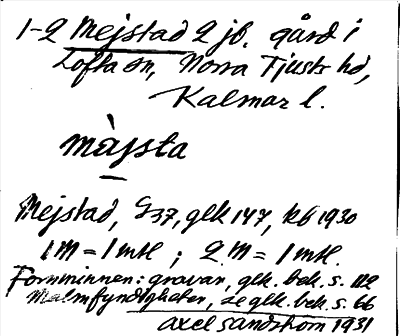 1-2 Mejstad 2 jb. gård i
Lofta sn, Norra Tjusts hd,
Kalmar l.
màjsta
Mejstad, S37, glk 147, kb 1930
1 M = 1 mtl ; 2 M = 1 mtl.
Fornminnen: gravar, glk. bek. s. 112
Malmfyndigheter, se glk. bek. s. 66
Axel Sandström 1931